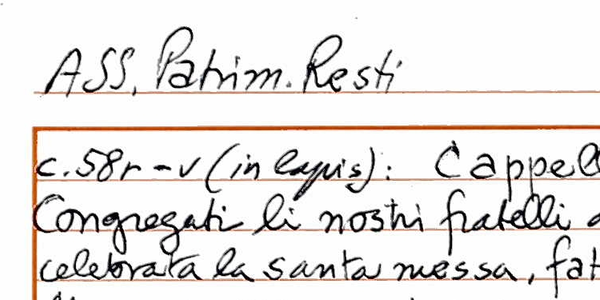 ASS, Patrim. Resti
c. 58r-v (in lapis): Cappel
Congregati li nostri fratelli
celebrata la santa messa, fat